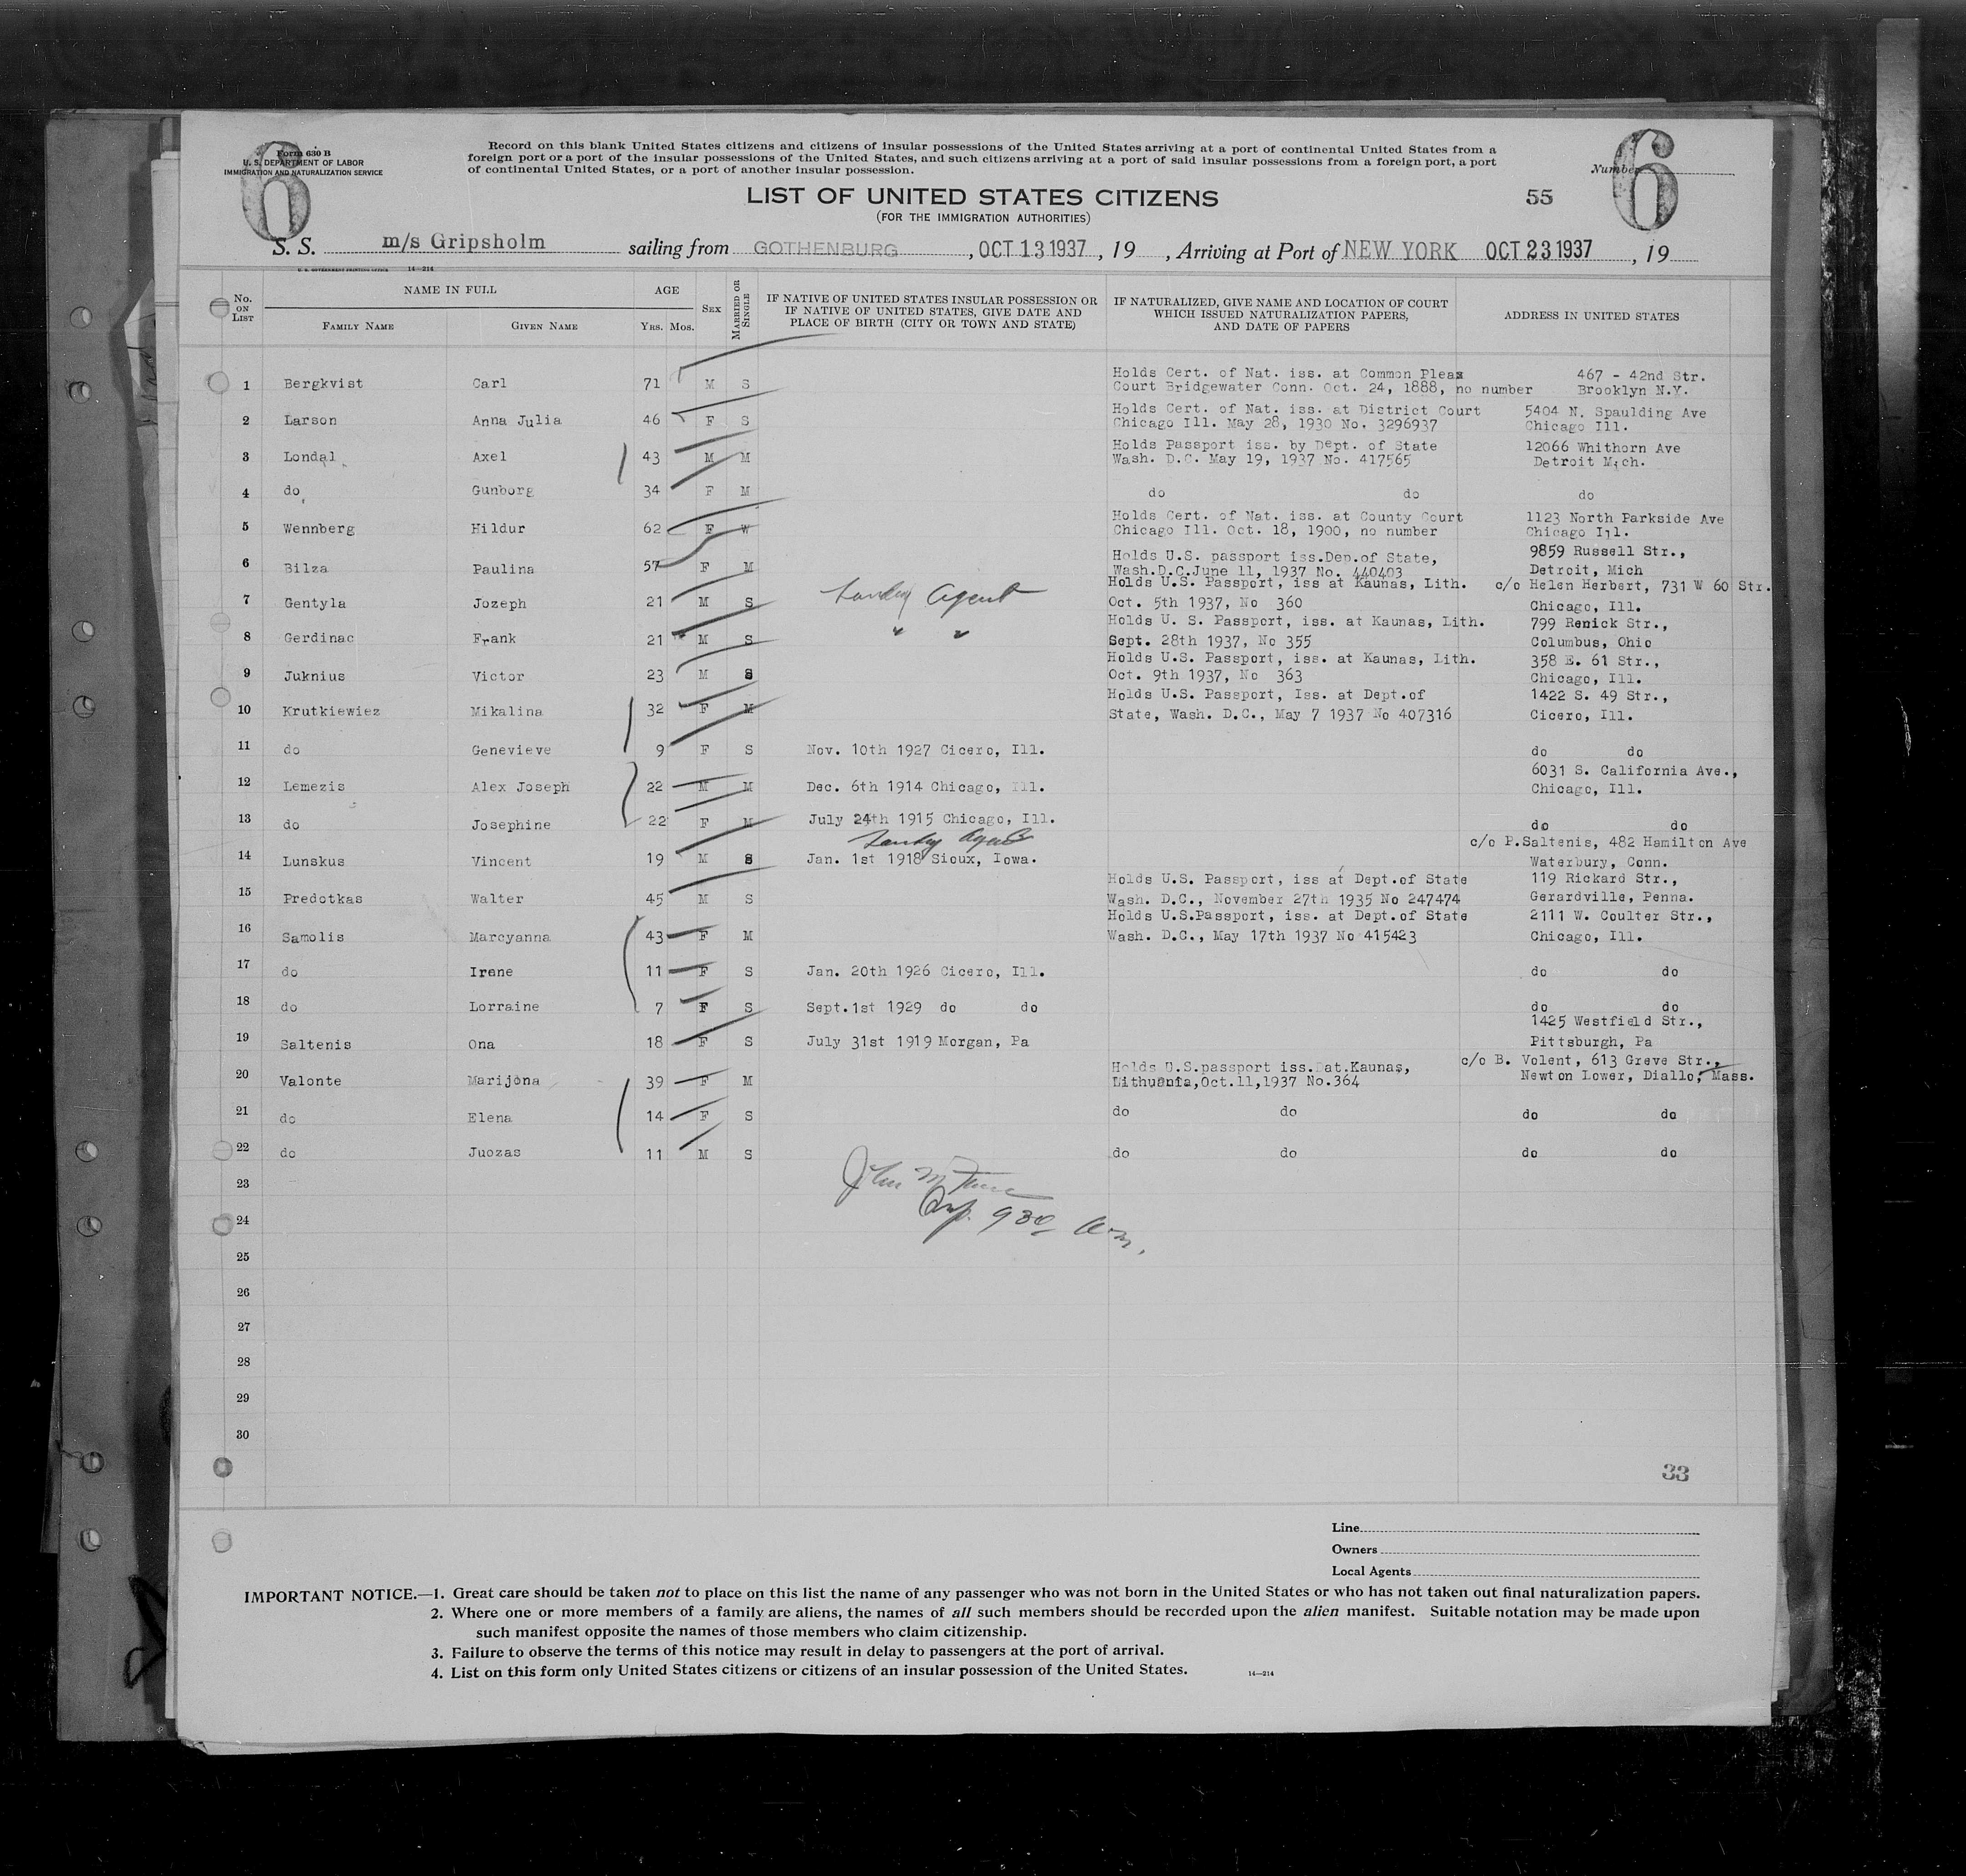 Form 630 B
U. S. DEPARTMENT OF LABOR
IMMIGRATION AND NATURALIZATION SERVICE
6
Record on this blank United States citizens and citizens of insular possessions of the United States arriving at a port of continental United States from a
foreign port or a port of the insular possessions of the United States, and such citizens arriving at a port of said insular possessions from a foreign port, a port
of continental United States, or a port of another insular possession.
Number
6
LIST OF UNITED STATES CITIZENS
55
(FOR THE IMMIGRATION AUTHORITIES)
S. S. m/s Gripsholm sailing from GOTHENBURG, OCT 13 1937, 19, Arriving at Port of NEW YORK OCT 23 1937, 19
U. S. GOVERNMENT PRINTING OFFICE 14—214
No. ON LIST
NAME IN FULL
FAMILY NAME GIVEN NAME
AGE
YRS. MOS.
SEX
MARRIED OR SINGLE
IF NATIVE OF UNITED STATES INSULAR POSSESSION OR
IF NATIVE OF UNITED STATES, GIVE DATE AND
PLACE OF BIRTH (CITY OR TOWN AND STATE)
IF NATURALIZED, GIVE NAME AND LOCATION OF COURT
WHICH ISSUED NATURALIZATION PAPERS,
AND DATE OF PAPERS
ADDRESS IN UNITED STATES
1 Bergkvist Carl 71 M S Holds Cert. of Nat. iss. at Common Pleas 467 - 42nd Str.
Court Bridgewater Conn. Oct. 24, 1888, no number Brooklyn N.Y.
2 Larson Anna Julia 46 F S Holds Cert. of Nat. iss. at District Court 5404 N. Spaulding Ave
Chicago Ill. May 28, 1930 No. 3296937 Chicago Ill.
3 Londal Axel 43 M M Holds Passport iss. by Dept. of State 12066 Whithorn Ave
Wash. D.C. May 19, 1937 No. 417565 Detroit Mich.
4 do Gunborg 34 F M do do do
5 Wennberg Hildur 62 F W Holds Cert. of Nat. iss. at County Court 1123 North Parkside Ave
Chicago Ill. Oct. 18, 1900, no number Chicago Ill.
6 Bilza Paulina 57 F M Holds U.S. passport iss.Dep.of State, 9859 Russell Str.,
Wash.D.C.June 11, 1937 No. 440403 Detroit, Mich
7 Gentyla Jozeph 21 M S Agent Holds U.S. Passport, iss at Kaunas, Lith. c/o Helen Herbert, 731 W 60 Str.
Oct. 5th 1937, No 360 Chicago, Ill.
8 Gerdinac Frank 21 M S " " Holds U. S. Passport, iss. at Kaunas, Lith. 799 Renick Str.,
Sept. 28th 1937, No 355 Columbus, Ohio
9 Juknius Victor 23 M S Holds U.S. Passport, iss. at Kaunas, Lith. 358 E. 61 Str.,
Oct. 9th 1937, No 363 Chicago, Ill.
10 Krutkiewiez Mikalina 32 F M Holds U.S. Passport, Iss. at Dept.of 1422 S. 49 Str.,
State, Wash. D.C., May 7 1937 No 407316 Cicero, Ill.
11 do Genevieve 9 F S Nov. 10th 1927 Cicero, Ill. do do
12 Lemezis Alex Joseph 22 M M Dec. 6th 1914 Chicago, Ill. 6031 S. California Ave.,
Chicago, Ill.
13 do Josephine 22 F M July 24th 1915 Chicago, Ill. do do
14 Lunskus Vincent 19 M S Jan. 1st 1918 Sioux, Iowa. c/o P.Saltenis, 482 Hamilton Ave
Waterbury, Conn.
15 Predotkas Walter 45 M S Holds U.S. Passport, iss at Dept.of State 119 Rickard Str.,
Wash. D.C., November 27th 1935 No 247474 Gerardville, Penna.
16 Samolis Marcyanna 43 F M Holds U.S.Passport, iss. at Dept.of State 2111 W. Coulter Str.,
Wash. D.C., May 17th 1937 No 415423 Chicago, Ill.
17 do Irene 11 F S Jan. 20th 1926 Cicero, Ill. do do
18 do Lorraine 7 F S Sept.1st 1929 do do do do
19 Saltenis Ona 18 F S July 31st 1919 Morgan, Pa 1425 Westfield Str.,
Pittsburgh, Pa
20 Valonte Marijona 39 F M Holds U.S.passport iss.Dat.Kaunas, c/o B. Volent, 613 Greve Str.,
Lithuania,Oct.11,1937 No.364 Newton Lower, Diallo, Mass.
21 do Elena 14 F S do do do do
22 do Juozas 11 M S do do do do
23
24
John M
930 am.
25
26
27
28
29
30
33
Line
Owners
Local Agents
IMPORTANT NOTICE.—1. Great care should be taken not to place on this list the name of any passenger who was not born in the United States or who has not taken out final naturalization papers.
2. Where one or more members of a family are aliens, the names of all such members should be recorded upon the alien manifest. Suitable notation may be made upon
such manifest opposite the names of those members who claim citizenship.
3. Failure to observe the terms of this notice may result in delay to passengers at the port of arrival.
4. List on this form only United States citizens or citizens of an insular possession of the United States. 14—214